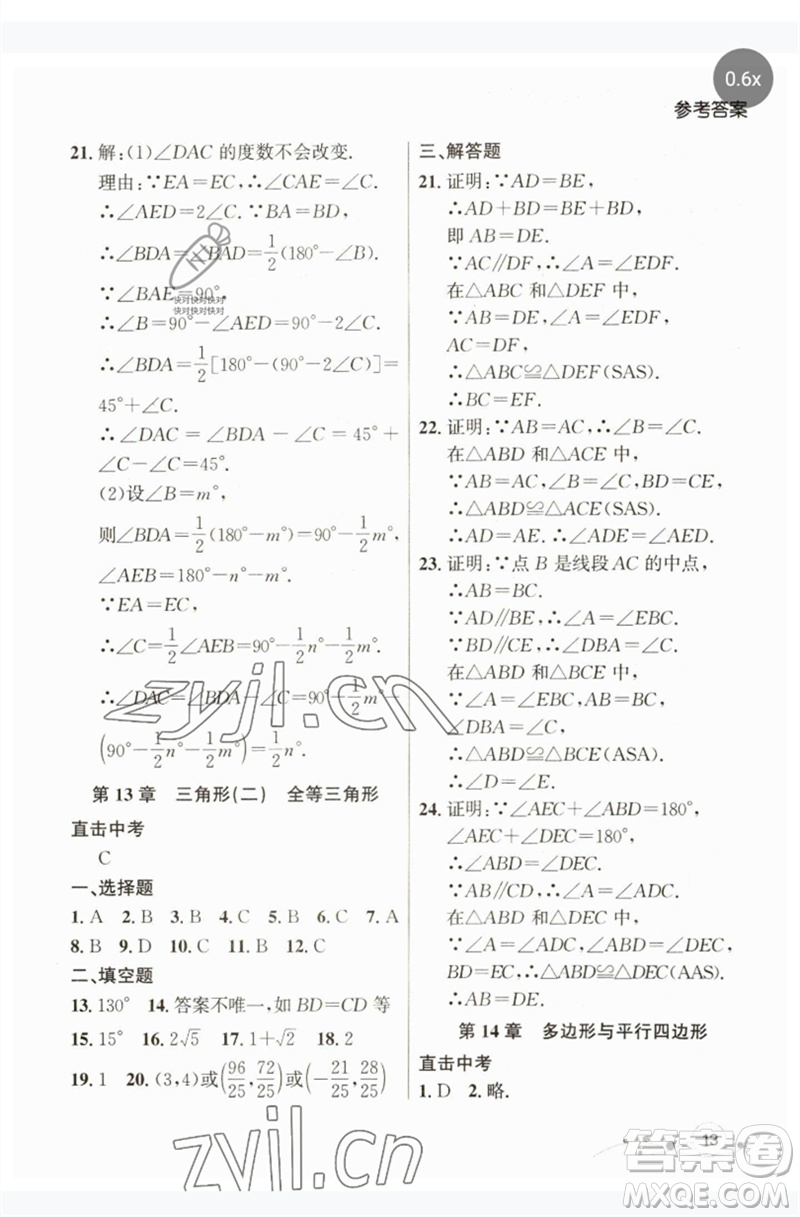 0.6x
参考答案
21. 解:(1)∠DAC 的度数不会改变.
理由:∵EA=EC,∴∠CAE=∠C.
∴∠AED=2∠C. ∵BA=BD,
∴∠BDA=∠BAD=1/2(180°-∠B).
∵∠BAE=90°,
快对快对快对
快对快对快对
∴∠B=90°-∠AED=90°-2∠C.
∴∠BDA=1/2[180°-(90°-2∠C)]=
45°+∠C.
∴∠DAC=∠BDA-∠C=45°+
∠C-∠C=45°.
(2)设∠B=m°,
则∠BDA=1/2(180°-m°)=90°-1/2m°,
∠AEB=180°-n°-m°.
∵EA=EC,
∴∠C=1/2∠AEB=90°-1/2n°-1/2m°.
∴∠DAC=∠BDA-∠C=90°-1/2m°-
(90°-1/2n°-1/2m°)=1/2n°.
第 13 章 三角形(二) 全等三角形
直击中考
C
一、选择题
1. A 2. B 3. B 4. C 5. C 6. B 7. A
8. B 9. D 10. C 11. B 12. C
二、填空题
13. 130° 14. 答案不唯一,如 BD=CD 等
15. 15° 16. 2√5 17. 1+√2 18. 2
19. 1 20. (3,4)或(96/25,72/25)或(-21/25,28/25)
三、解答题
21. 证明:∵AD=BE,
∴AD+BD=BE+BD,
即 AB=DE.
∵AC∥DF,∴∠A=∠EDF.
在△ABC 和△DEF 中,
∵AB=DE,∠A=∠EDF,
AC=DF,
∴△ABC≌△DEF(SAS).
∴BC=EF.
22. 证明:∵AB=AC,∴∠B=∠C.
在△ABD 和△ACE 中,
∵AB=AC,∠B=∠C,BD=CE,
∴△ABD≌△ACE(SAS).
∴AD=AE. ∴∠ADE=∠AED.
23. 证明:∵点 B 是线段 AC 的中点,
∴AB=BC.
∵AD∥BE,∴∠A=∠EBC.
∵BD∥CE,∴∠DBA=∠C.
在△ABD 和△BCE 中,
∵∠A=∠EBC,AB=BC,
∠DBA=∠C,
∴△ABD≌△BCE(ASA).
∴∠D=∠E.
24. 证明:∵∠AEC+∠ABD=180°,
∠AEC+∠DEC=180°,
∴∠ABD=∠DEC.
∵AB∥CD,∴∠A=∠ADC.
在△ABD 和△DEC 中,
∵∠A=∠ADC,∠ABD=∠DEC,
BD=EC,∴△ABD≌△DEC(AAS).
∴AD=DC.
第 14 章 多边形与平行四边形
直击中考
1. D 2. 略.
13
zyjl.cn
zyjl.cn
答案卷
MXQE.COM